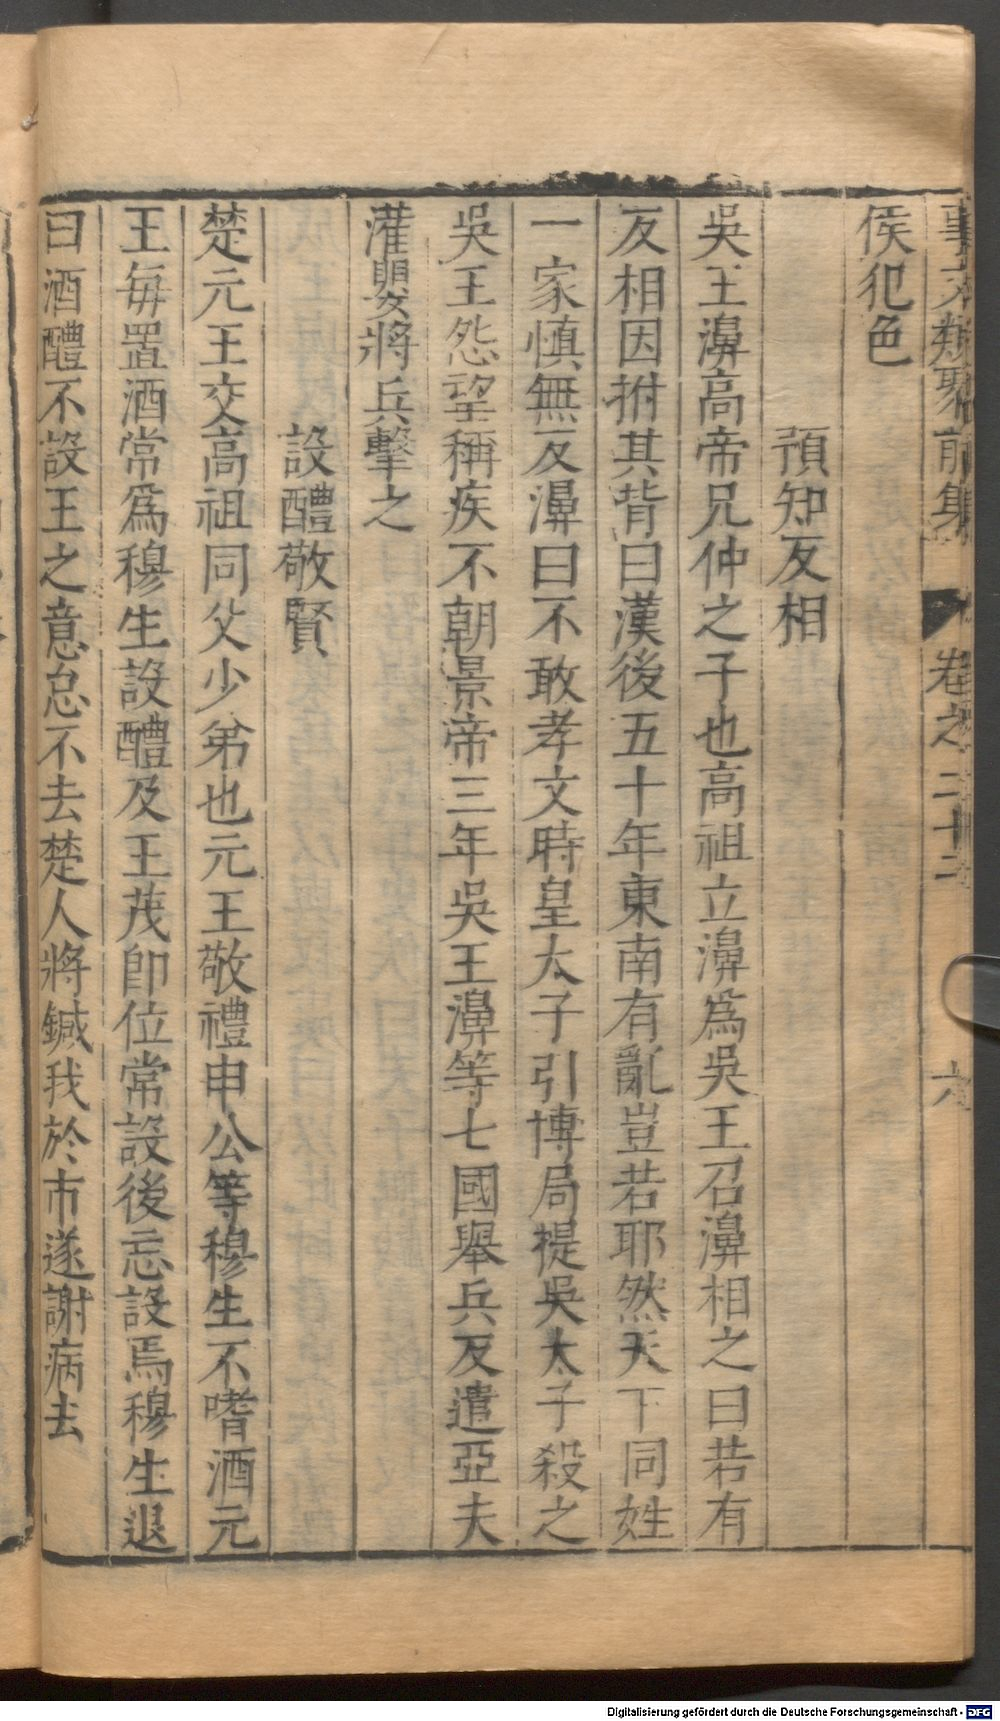 事文類聚前集 卷之二十二 六
侯犯色
預知反相
吳王濞高帝兄仲之子也高祖立濞爲吳王召濞相之曰若有
反相因拊其背曰漢後五十年東南有亂豈若耶然天下同姓
一家慎無反濞曰不敢孝文時皇太子引博局提吳太子殺之
吳王怨望稱疾不朝景帝三年吳王濞等七國舉兵反遣亞夫
灌嬰將兵擊之
設醴敬賢
楚元王交高祖同父少弟也元王敬禮申公等穆生不嗜酒元
王每置酒常爲穆生設醴及王茂卽位常設後忘設焉穆生退
曰酒醴不設王之意怠不去楚人將鍼我於市遂謝病去
Digitalisierung gefördert durch die Deutsche Forschungsgemeinschaft - DFG